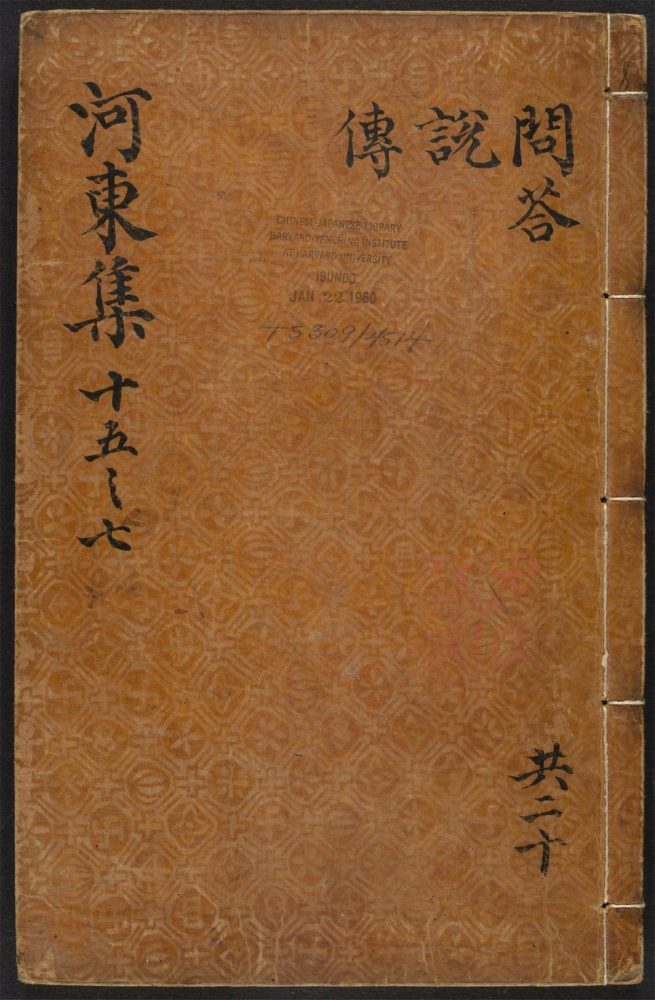 問答
說
傳
河東集 十五之七
共二十
CHINESE-JAPANESE LIBRARY
HARVARD-YENCHING INSTITUTE
AT HARVARD UNIVERSITY
IBUNDO
JAN 22 1960
TS309/4514